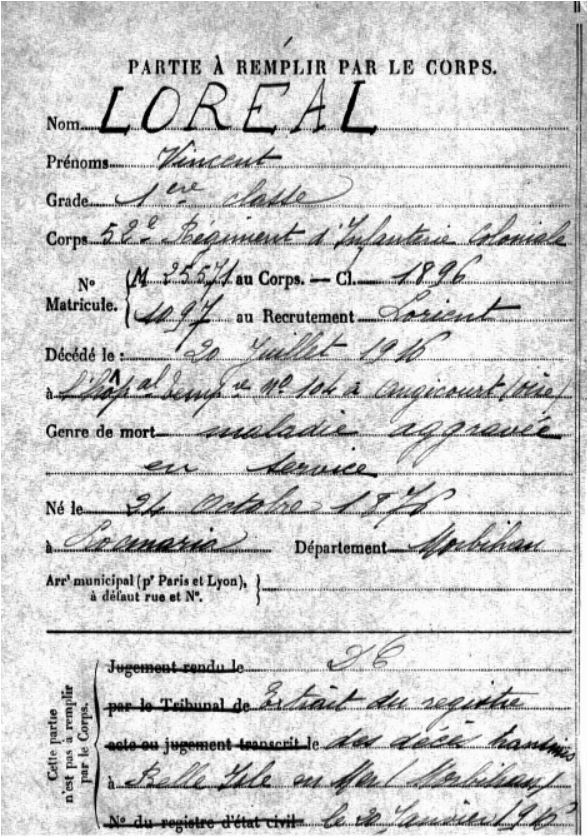 PARTIE À REMPLIR PAR LE CORPS.
Nom LOREAL
Prénoms Vincent
Grade 1ere classe
Corps 52e Régiment d'Infanterie Coloniale
No Matricule. { M 25571 au Corps. — Cl. 1896
1097 au Recrutement Lorient
Décédé le : 20 Juillet 1916
à l'hôpal temp re No 104 à Angicourt (oise)
Genre de mort maladie aggravée
en service
Né le 24 Octobre 1876
à Locmaria Département Morbihan
Arrt municipal (pr Paris et Lyon),
à défaut rue et No.
Cette partie n'est pas à remplir par le Corps.
Jugement rendu le D 6
par le Tribunal de Extrait du registre
acte ou jugement transcrit le des décès transmis
à Belle Isle en Mer (Morbihan)
No du registre d'état civil le 20